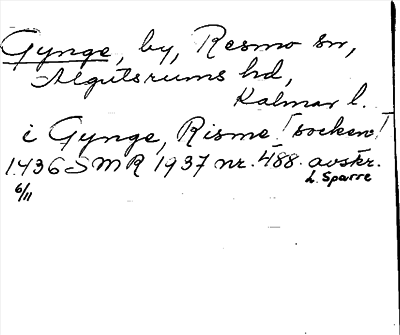 Gynge, by, Resmo sn,
Algutsrums hd,
Kalmar l.
i Gynge, Risme! socken!
1436 SMR 1937 nr. 488. avskr.
6/11 L. Sparre